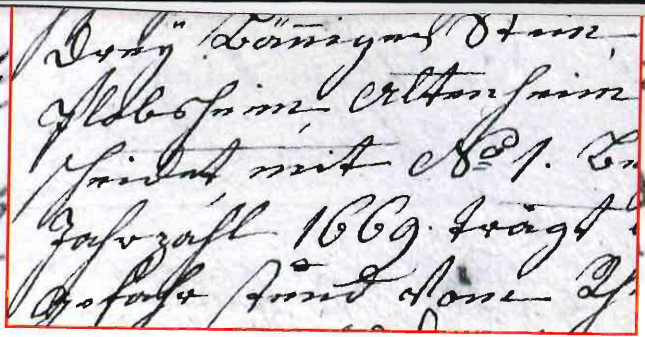 Dreÿ Bäñiger Stein,
Plobsheim, Altenheim
scheidet, mit No 1. Be
Jahrzahl 1669. trägt
gefahr stund Vom Rh